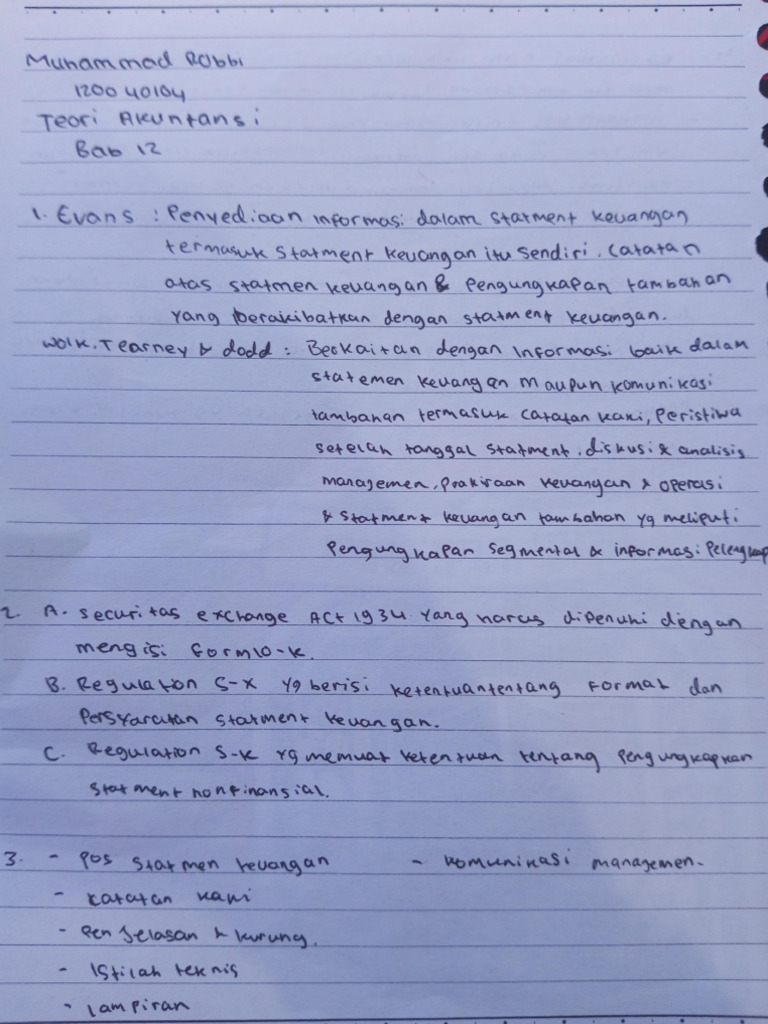 Muhammad Robbi
120040104
Teori Akuntansi
Bab 12
1. Evans : Penyediaan informasi dalam statment keuangan
termasuk statment keuangan itu sendiri, catatan
atas statmen keuangan & pengungkapan tambahan
yang berakibatkan dengan statment keuangan.
Wolk, Tearney & dodd : Berkaitan dengan informasi baik dalam
statemen keuangan maupun komunikasi
tambahan termasuk catatan kaki, peristiwa
setelah tanggal statment, diskusi & analisis
managemen, prakiraan keuangan & operasi
& statment keuangan tambahan yg meliputi
pengungkapan segmental & informasi pelengkap
2. A. securitas exchange ACt 1934 yang harus dipenuhi dengan
mengisi form 10-k.
B. Regulation S-X yg berisi ketentuan tentang format dan
Persyaratan statment keuangan.
C. Regulation S-K yg memuat ketentuan tentang pengungkapkan
statment nonfinansial.
3. - Pos statmen keuangan - komunikasi managemen.
- catatan kaki
- Penjelasan & kurung.
- Istilah teknis
- lampiran